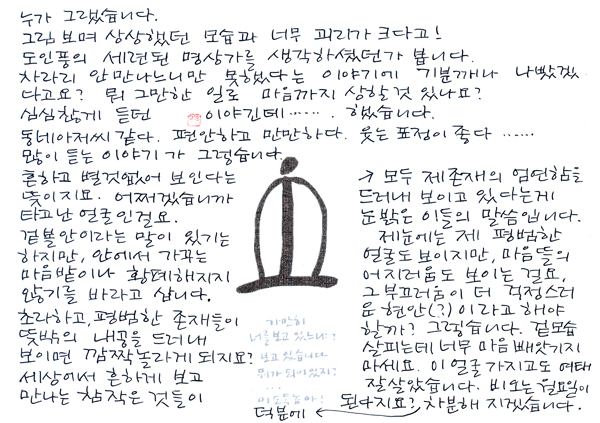 누가 그랬습니다.
그림 보며 상상했던 모습과 너무 괴리가 크다고!
도인풍의 세련된 명상가를 생각하셨던가 봅니다.
차라리 안 만나느니만 못했다는 이야기에 기분깨나 나빴겠
다고요? 뭐 그만한 일로 마음까지 상할 것 있나요?
심심찮게 듣던 이야긴데……. 했습니다.
동네아저씨 같다. 편안하고 만만하다. 웃는 표정이 좋다 ……
많이 듣는 이야기가 그렇습니다.
흔하고 별것없어 보인다는
뜻이지요. 어쩌겠습니까
타고난 얼굴인걸요.
겉볼안이라는 말이 있기는
하지만, 안에서 가꾸는
마음밭이나 황폐해지지
않기를 바라고 삽니다.
초라하고, 평범한 존재들이
뜻밖의 내공을 드러내
보이면 깜짝놀라게 되지요?
세상에서 흔하게 보고
만나는 참 작은 것들이
→ 모두 제존재의 엄연함을
드러내 보이고 있다는게
눈밝은 이들의 말씀입니다.
제눈에는 제 평범한
얼굴도 보이지만, 마음뜰의
어지러움도 보이는 걸요,
그 부끄러움이 더 걱정스러
운 현안(?)이라고 해야
할까? 그렇습니다. 겉모습
살피는데 너무 마음 빼앗기지
마세요. 이 얼굴 가지고도 여태
잘살았습니다. 비오는 월요일이
된다지요? 차분해 지겠습니다.
가만히
너를 보고 있느냐?
보고 있습니다
뭐가 되어있지?
…
덕분에